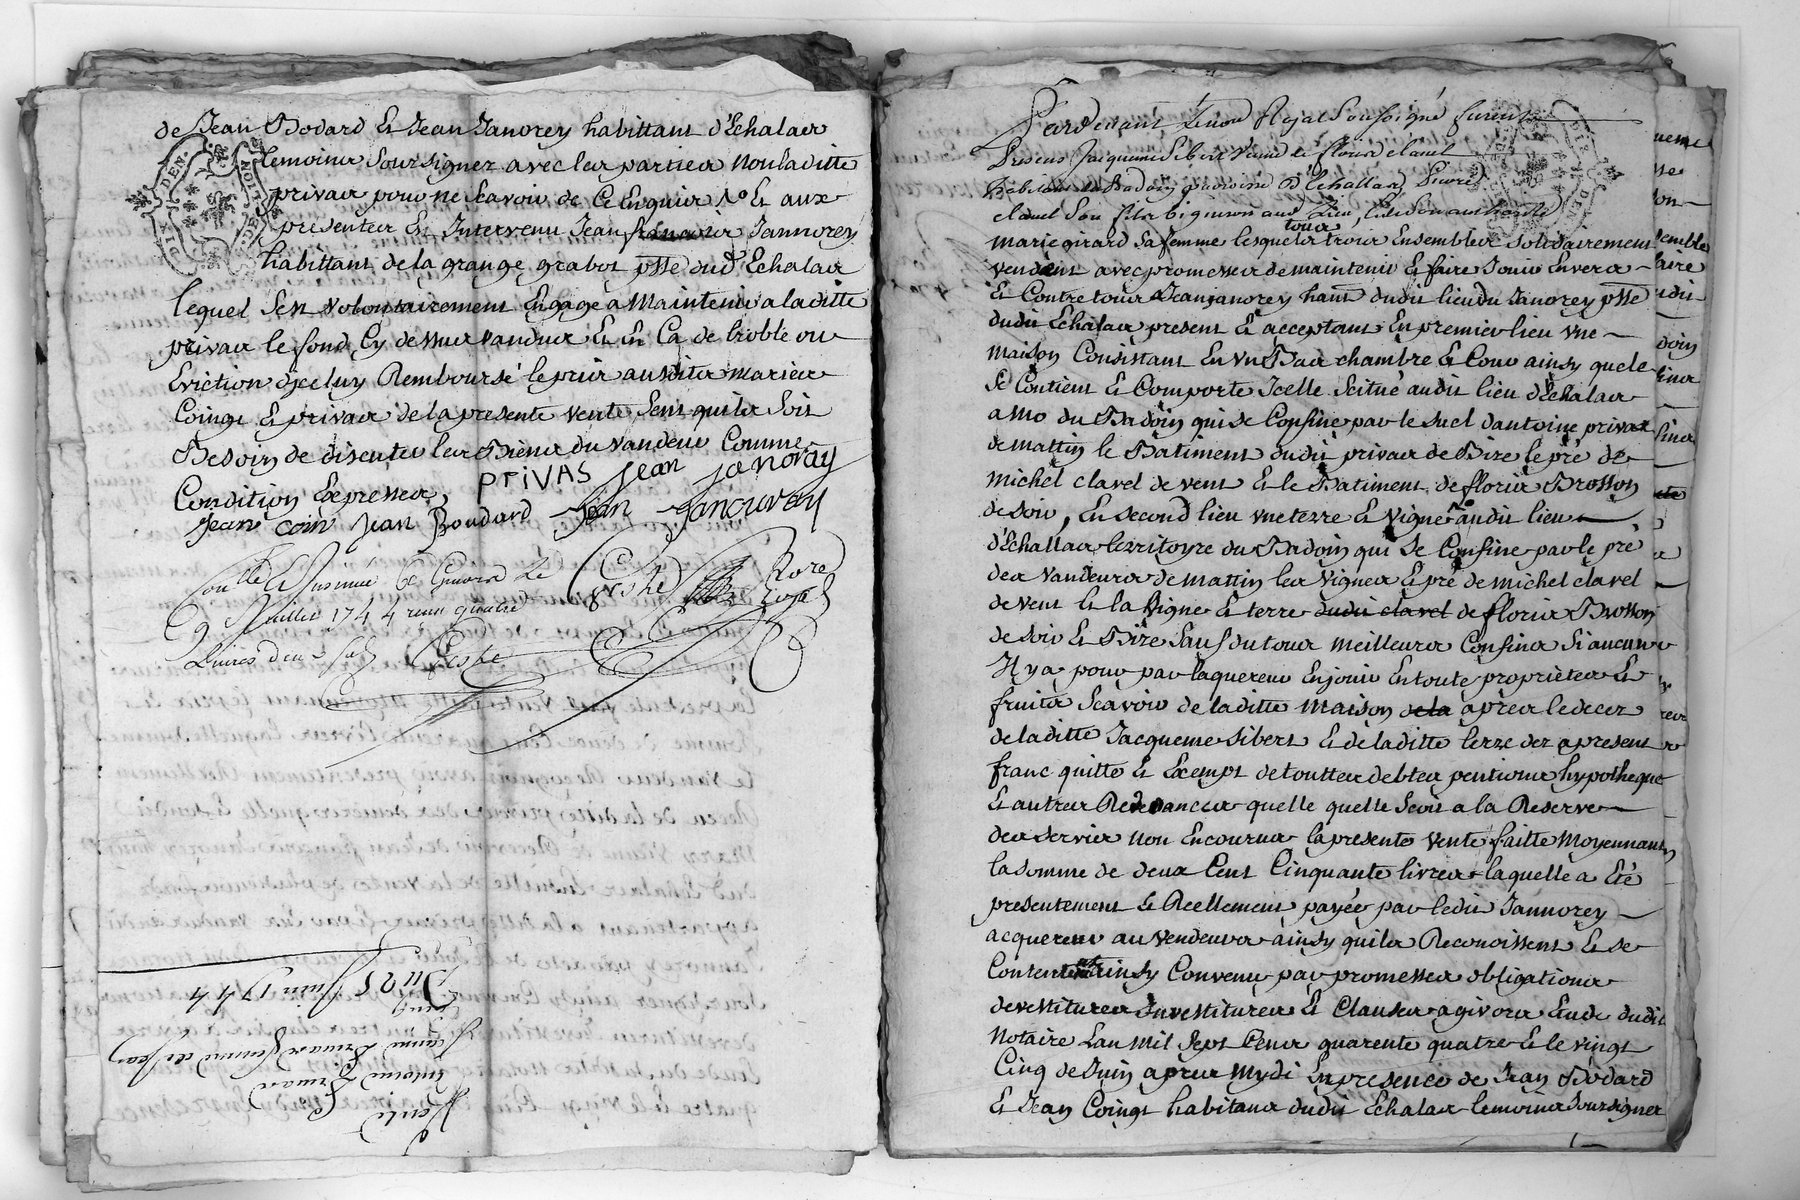 de Jean Bodard & Jean Janorey habittant d'Echalas
temoins soursignez avec les parties non laditte
privas pour ne scavoir de ce Enquis No & aux
presentes Est Intervenu Jean francois Jannorey
habittant de la grange grabot psse dud Echalas
lequel sest volontairement Engagé a Maintenir a laditte
privas le fond Cy dessus vandus Et En Ca de troble ou
Eviction dJceluy Remboursé le prix ausdits maries
Coingt & privas de la presente vente sent quils soit
Besoin de discuter les Biens du vandeur Comme
Condition Expresses,
PRIVAS Jean janoray
Jean coin Jean Boudard Jean Janouray
Conlle & Insinué a Givors le
9 Juillet 1744 reçu quatre
Livres deux sols
Nore Royal
Du 25 Juin 1744
Vente
Pardevant Lenore Royal Soussigné furent
Presens Jacqueme Sibert veuve de fleury clavel
habitans du Badoin paroisse d'Echallas, Pierre
clavel son fils vigneron aud Lieu, & de son authorité
marie girard sa femme lesquels tous trois Ensembles solidairement
vendent avec promesses de maintenir & faire Jouir Envers
& Contre tous a Jean janorey habt dudit lieu du Janorey psse
dudit Echalas present & acceptant En premier lieu une
maison Consistant En un Bas chambre & Cour ainsy quele
se Contient & Comporte Jcelle scitué audit lieu d'Echalas
a Mo du Badoin qui se Confine par le suel dantoine privas
de mattin le Batiment dudit privas de Bize le pré de
michel clavel de vent & le Batiment de floris Brosson
de soir, En second lieu une terre & vigne audit lieu
d'Echallas, territoyre du Badoin qui se Confine par le pré
des vandeurs de mattin les vignes & pré de michel clavel
de vent & la vigne & terre dudit clavel de floris Brosson
de soir & Bize sauf du tous meilleurs Confins si aucuns
Jl y a pour par laquereur Enjouir En toute proprietes &
fruits scavoir de laditte maison de la après le decez
de laditte Jacqueme sibert & de laditte terre dez apresent
franc quitte & Exempt de touttes debtes pentions hypotheque
& autres Redevances quelle quelle soit a la Reserve
des servis non Encourus la presente vente faitte Moyennant
la somme de deux Cent Cinquante livres laquelle a Eté
presentement & Reellement payée par ledit Jannorey
acquereur au vendeurs ainsy quils Reconoissent & se
Contentent ainsy Convenu par promesses obligations
devestitures Investitures & Clauses a givors Etude dudit
Notaire Lan Mil sept Cens quarente quatre & le vingt
Cinq de Juin aprez Mydi En presence de Jean Bodard
& Jean Coingt habitans dudit Echalas temoins soursignez